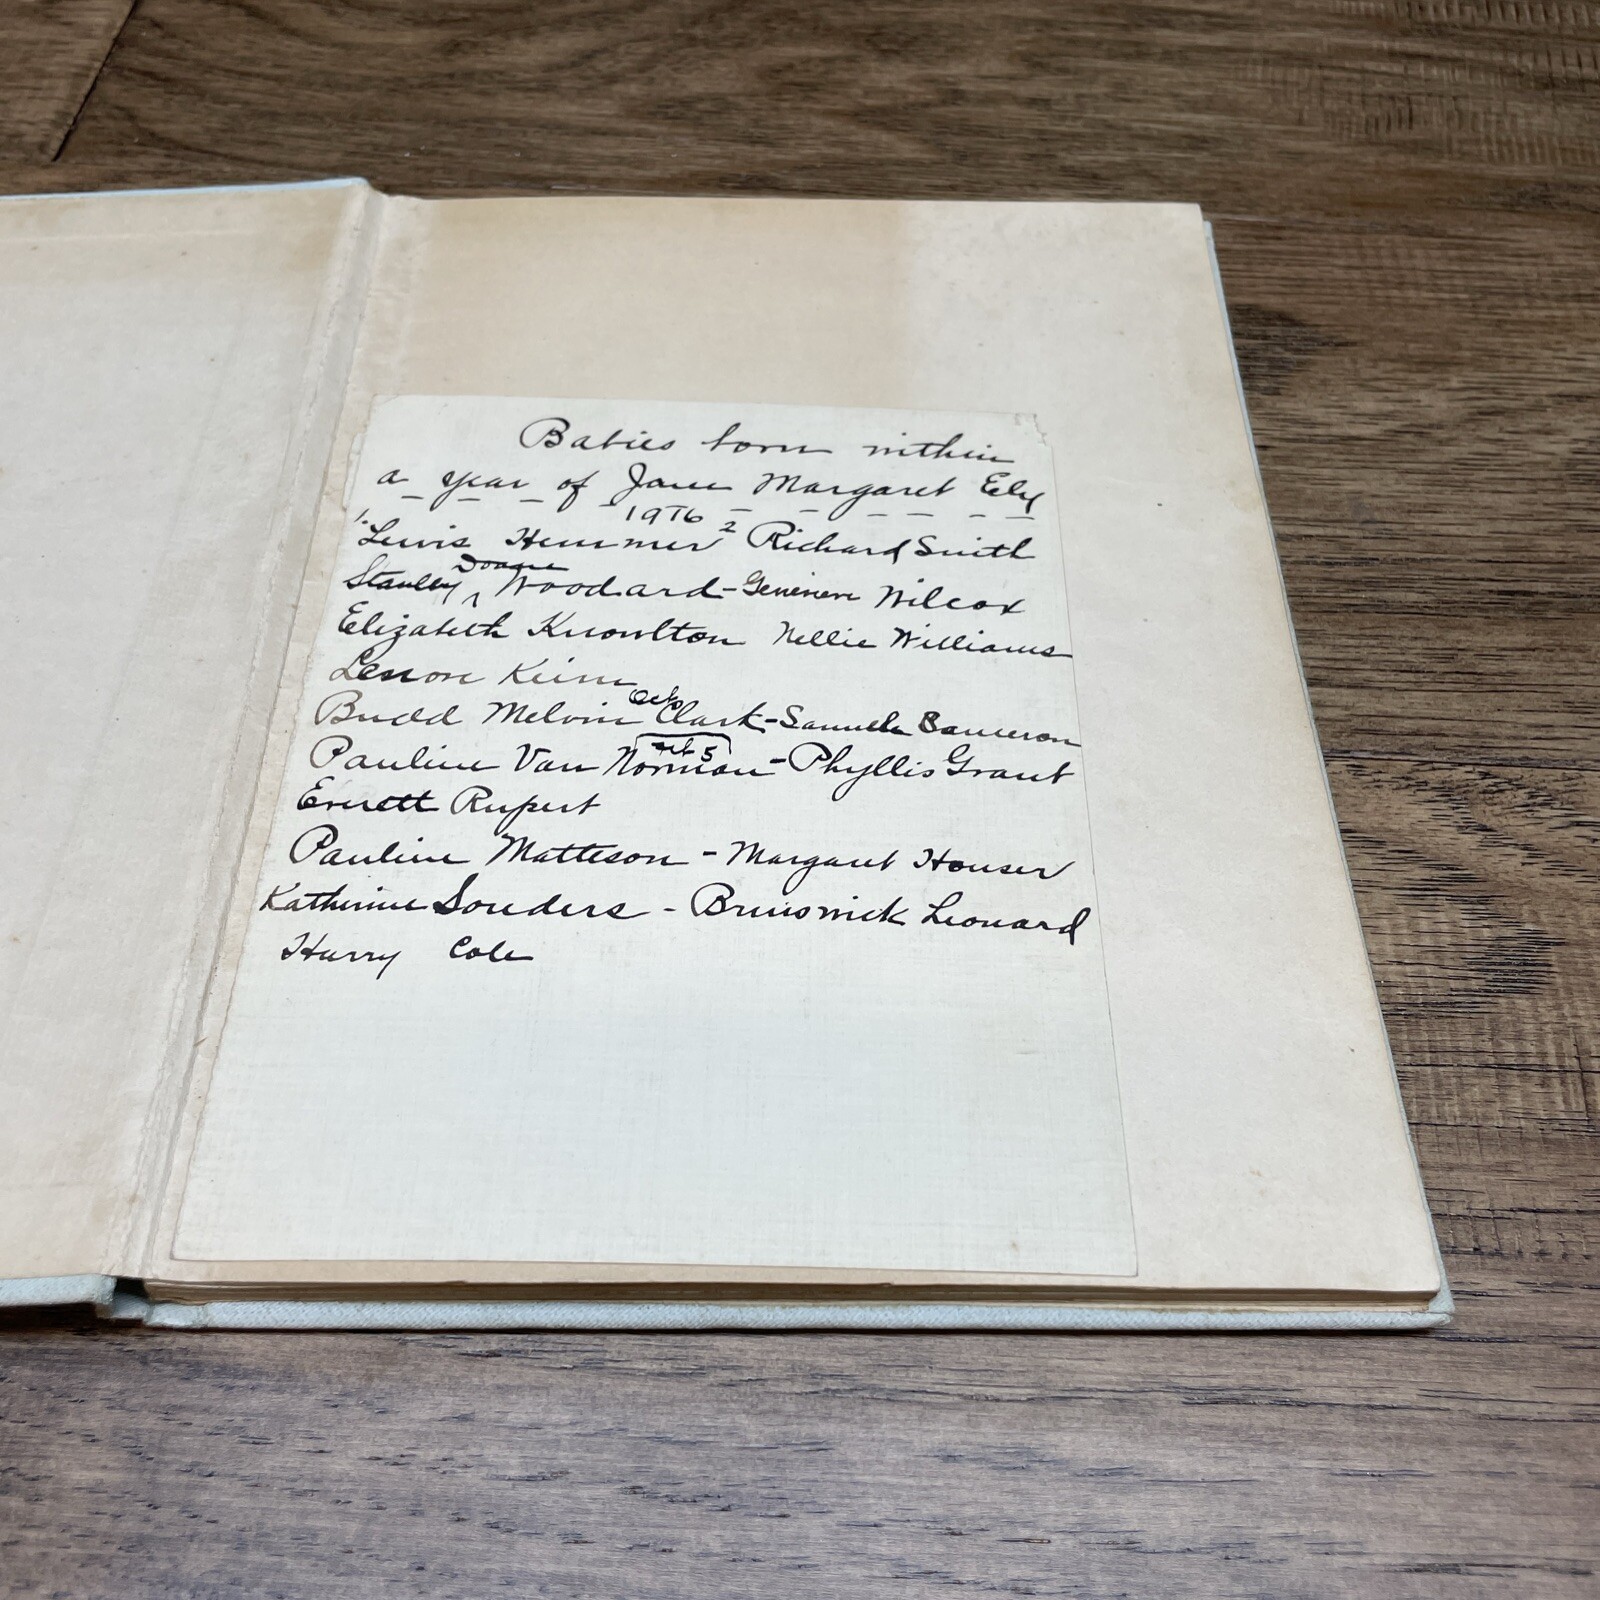 Babies born within
a year of Jane Margaret Ely
1916
1. Lewis Hemmer 2 Richard Smith
Doane
Stanley ^ Woodard - Genevieve Wilcox
Elizabeth Knowlton Nellie Williams
Lenore Keim
Oct
Budd Melvin Clark - Samuel Cameron
5
Pauline Van Norman - Phyllis Grant
Everett Rupert
Pauline Matteson - Margaret Houser
Katherine Souders - Brunswick Leonard
Harry Cole